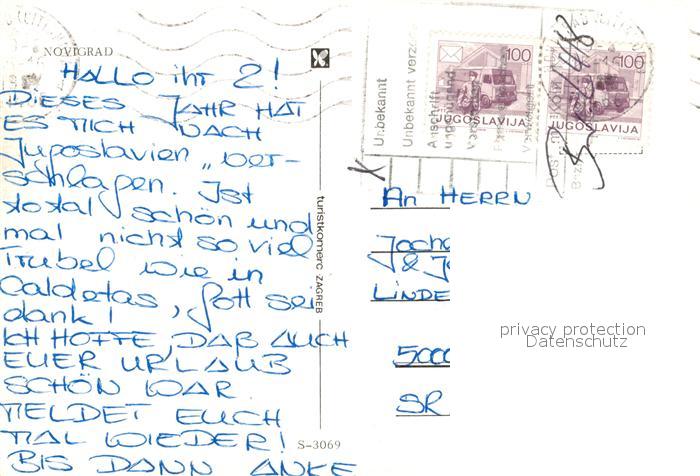 NOVIGRAD
HALLO ihr 2!
DIESES JAHR HAT
ES MICH NACH
Jugoslavien „ver-
schlagen. Ist
total schön und
mal nicht so viel
Trubel wie in
Caldetas, Gott sei
dank!
ICH HOFFE, DAß AUCH
EUER URLAUB
SCHÖN WAR.
MELDET EUCH
MAL WIEDER!
BIS DANN ANKE
turistkomerc ZAGREB
S-3069
Unbekannt
Unbekannt verzo
Anschrift
100
JUGOSLAVIJA
100
JUGOSLAVIJA
X
An HERRN
Joch
& J
LINDE
5000
SR
privacy protection
Datenschutz